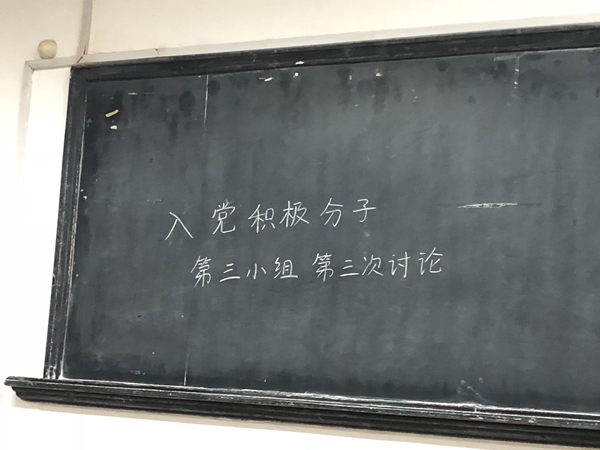 入党积极分子
第三小组 第三次讨论